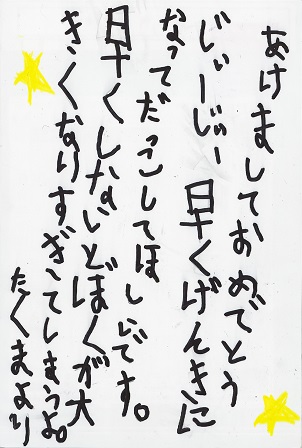 あけましておめでとう
じぃーじぃー 早くげんきに
なってだっこしてほしいです。
早くしないとぼくが大
きくなりすぎてしまうよ。
たくまより